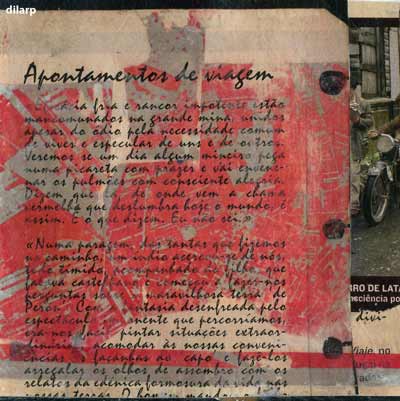 dilarp
Apontamentos de viagem
ia fria e rancor impotente estão
mancomunados na grande mina, unidos
apesar do ódio pela necessidade comum
de viver e especular de uns e de outros.
Veremos se um dia algum mineiro pega
numa picareta com prazer e vai envene-
nar os pulmões com consciente alegria.
Dizem que lá, de onde vem a chama
vermelha que deslumbra hoje o mundo, é
assim. É o que dizem. Eu não sei.»
«Numa paragem, das tantas que fizemos
no caminho, um índio acercou-se de nós,
todo tímido, acompanhado do filho que
falava castelhano e começou a fazer-nos
perguntas sobre a maravilhosa terra de
Perón. Com a fantasia desenfreada pelo
espectáculo imponente que percorríamos,
era-nos fácil pintar situações extraor-
dinárias, acomodar às nossas conveni-
ências as façanhas do capo e fazê-los
arregalar os olhos de assombro com os
relatos da edénica formosura da vida nas
nossas terras. O homem mandou
RRO DE LATA
nsciência po
divi-
Viaje, no